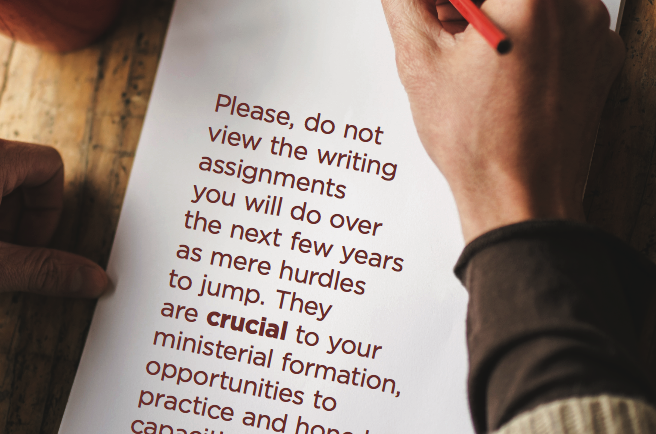 Please, do not
view the writing
assignments
you will do over
the next few years
as mere hurdles
to jump. They
are crucial to your
ministerial formation,
opportunities to
practice and hone